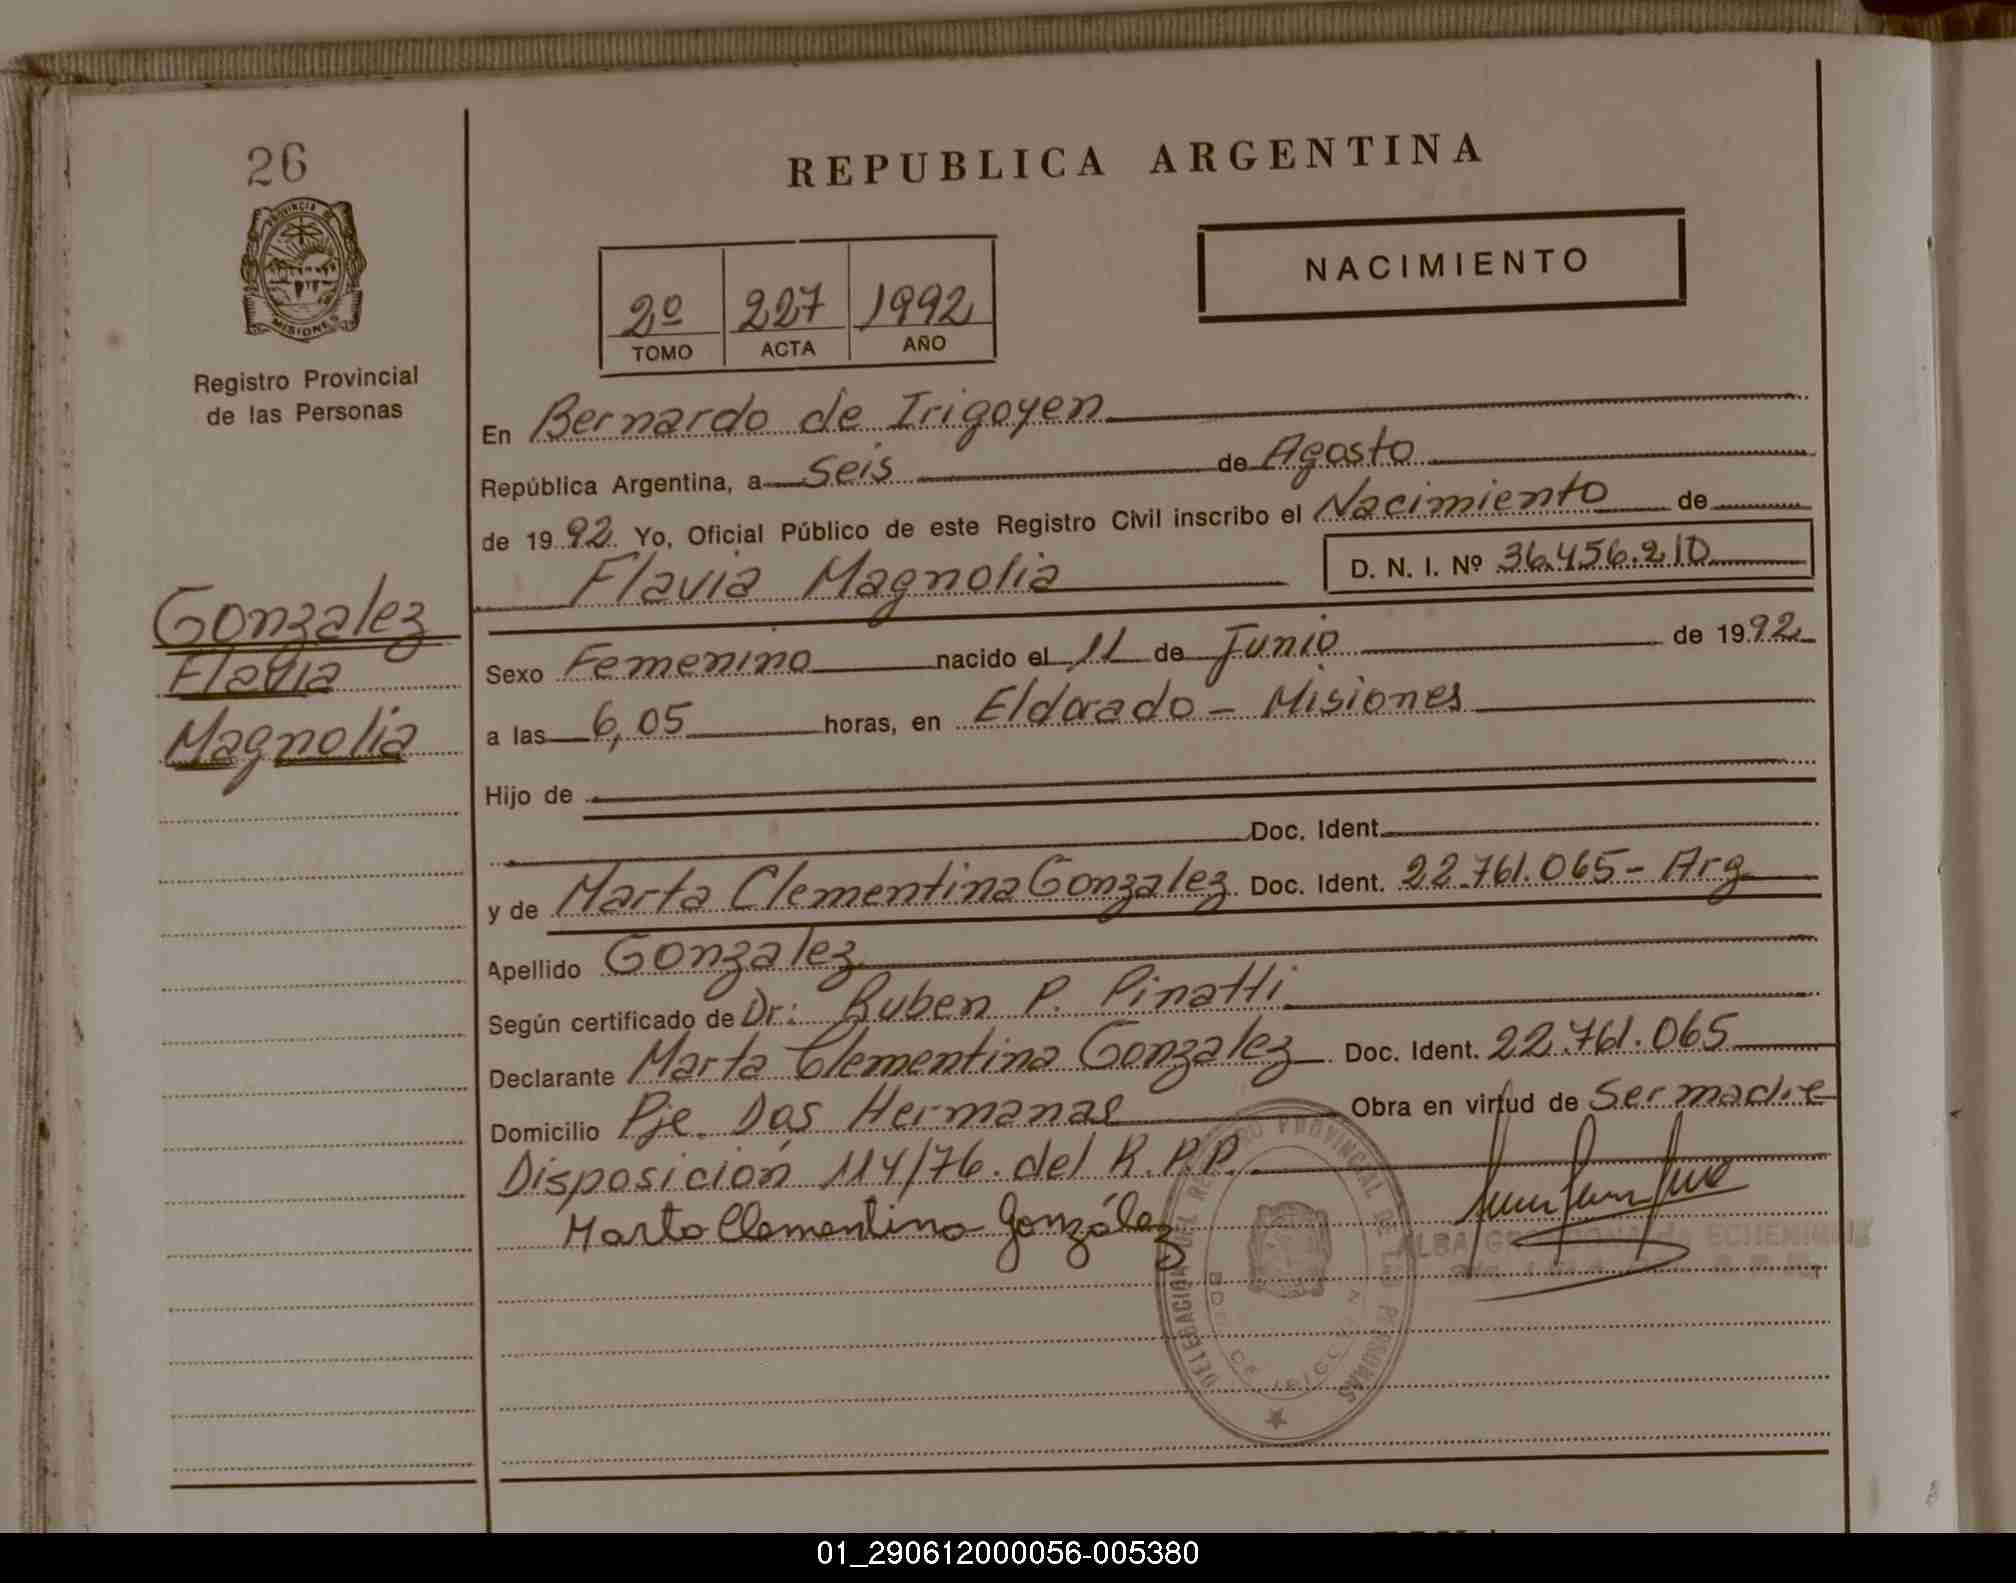 26
PROVINCIA DE
MISIONES
Registro Provincial
de las Personas
Gonzalez
Flavia
Magnolia
REPUBLICA ARGENTINA
NACIMIENTO
2º 227 1992
TOMO ACTA AÑO
En Bernardo de Irigoyen
República Argentina, a Seis de Agosto
de 1992. Yo, Oficial Público de este Registro Civil inscribo el Nacimiento de
Flavia Magnolia D. N. I. Nº 36.456.210
Sexo Femenino nacido el 11 de Junio de 1992
a las 6,05 horas, en Eldorado - Misiones
Hijo de
Doc. Ident.
y de Marta Clementina Gonzalez Doc. Ident. 22.761.065 - Arg
Apellido Gonzalez
Según certificado de Dr: Ruben P. Pinatti
Declarante Marta Clementina Gonzalez Doc. Ident. 22.761.065
Domicilio Pje. Dos Hermanas Obra en virtud de Ser madre
Disposición 114/76. del R.P.P.
Marta Clementina González
DELEGACION DEL REGISTRO PROVINCIAL DE LAS PERSONAS
BDO. DE IRIGOYEN
ALBA ECHENIQUE
01_290612000056-005380